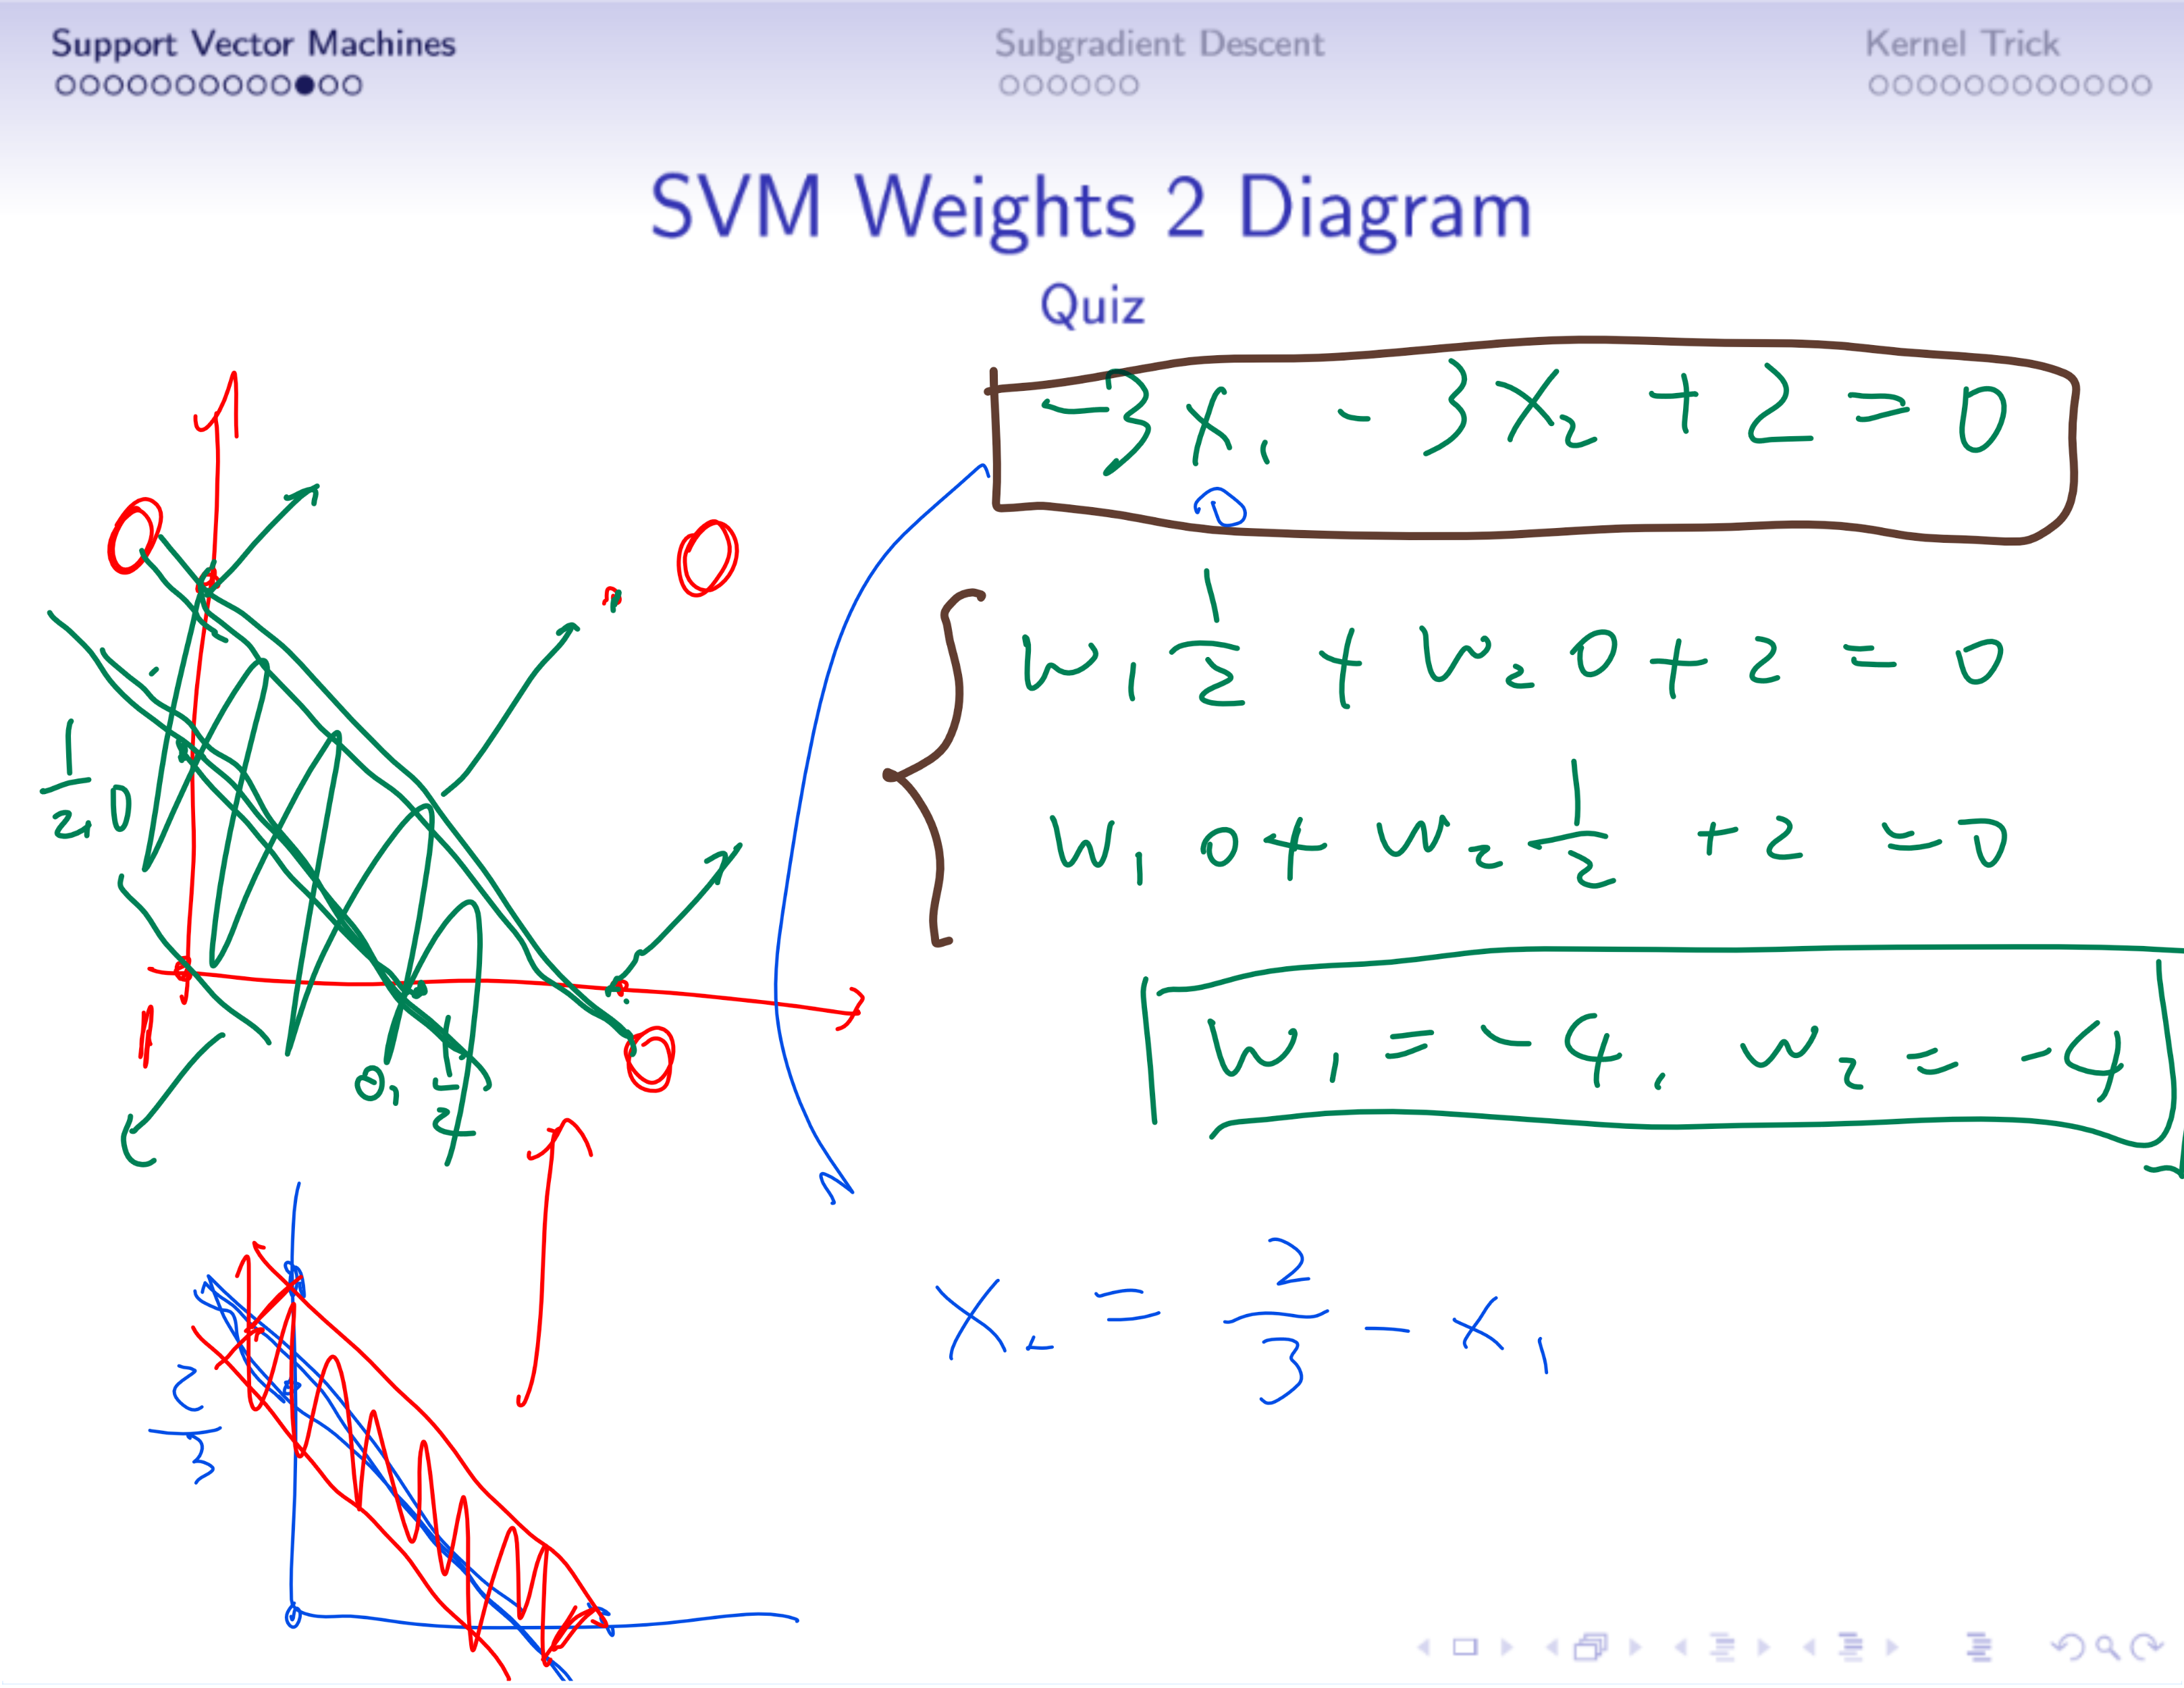 Support Vector Machines Subgradient Descent Kernel Trick
SVM Weights 2 Diagram
Quiz
-3x₁ - 3x₂ + 2 = 0
0
w₁ 1/2 + w₂ 0 + 2 = 0
w₁ 0 + w₂ 1/2 + 2 = 0
w₁ = -4, w₂ = -4
x₂ = 2/3 - x₁
0
0
1
0
1/2, 0
0, 1/2
2/3